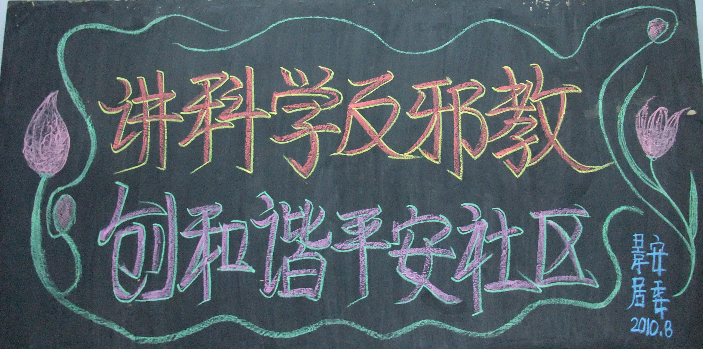 讲科学反邪教
创和谐平安社区
景安
居委
2010.8